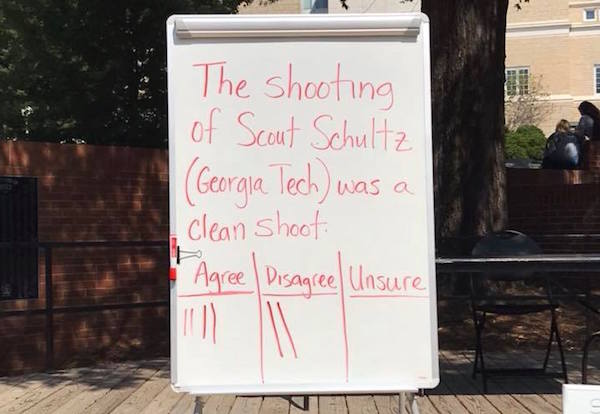 The shooting
of Scout Schultz
(Georgia Tech) was a
clean shoot.
Agree Disagree Unsure